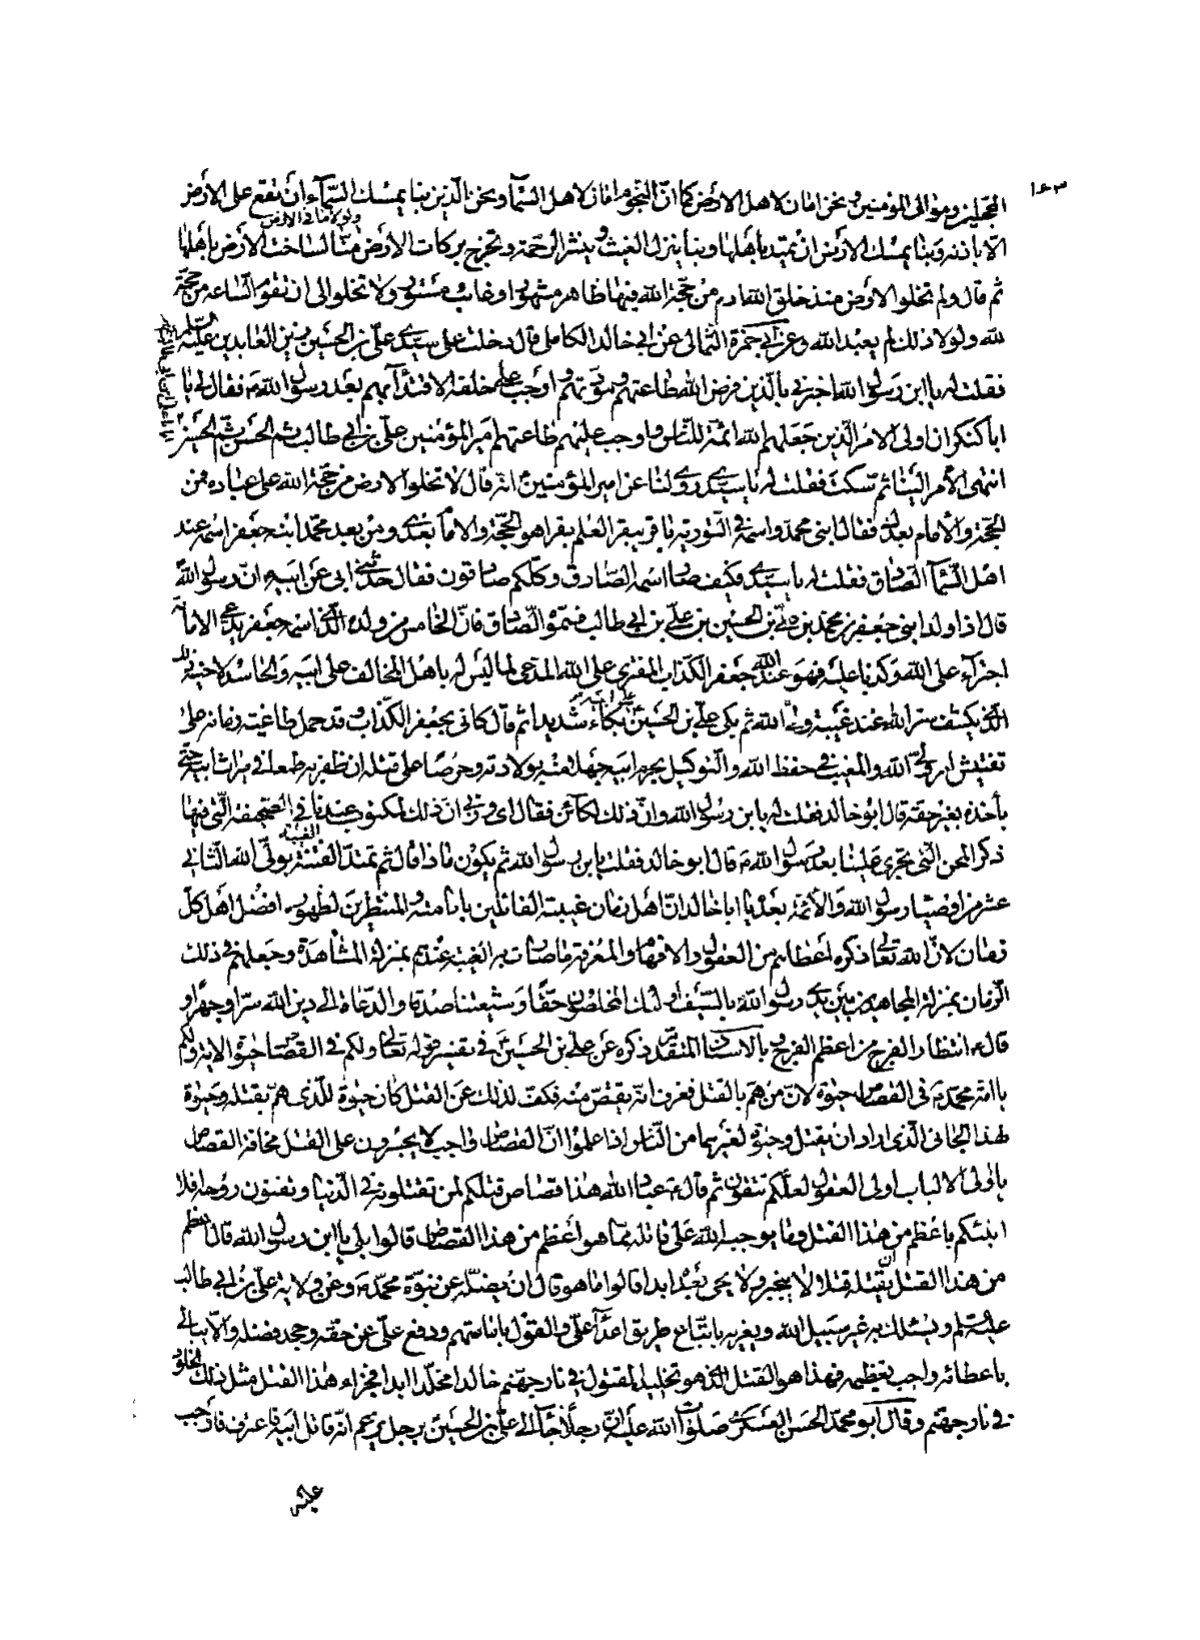 ١٤٣
المحجلين وموالى المؤمنين ونحن امان لاهل الارض كما انّ النجوم امان لاهل السّماء ونحن الّذين بنا يمسك السّماء ان تقع على الأرض
ولولا ما فى الارض
الّا باذنه وبنا يمسك الارض ان تميد باهلها وبنا ينزل الغيث وينشر الرحمة وتخرج بركات الارض منّا لساخت الارض باهلها
ثم قال ولم تخلوا الارض منذ خلق الله ادم من حجّة الله فيها ظاهر مشهور او غايب مستور ولا تخلوا الى ان تقوم السّاعة من حجّة
لله ولولا ذلك لم يعبد الله وعن ابى حمزة الثمالى عن ابى خالد الكاملى قال دخلت على سيدى علىّ بن الحسين زين العابدين عليه السّلم
فقلت له يا ابن رسول الله اخبرنى بالّذين فرض الله طاعتهم ومودّتهم واوجب على خلقه الاقتداء بهم بعد رسول الله ص فقال لى يا
ابا كنكر ان اولى الامر الّذين جعلهم الله ائمة للنّاس واوجب عليهم طاعتهم امير المؤمنين علىّ بن ابى طالب ثم الحسن ثم الحسين
انتهى الأمر الينا ثم سكت فقلت له يا سيدى روى لنا عن امير المؤمنين انّه قال لا تخلوا الارض من حجّة الله على عباده فمن
الحجّة والأمام بعدك فقال ابنى محمّد واسمه فى التّورية باقر يبقر العلم بقرا هو الحجّة والامام بعدى ومن بعد محمّد ابنه جعفر اسمه عند
اهل السّماء الصّادق فقلت له يا سيدى فكيف صار اسمه الصّادق وكلّكم صادقون فقال حدّثنى ابى عن ابيه انّ رسول الله
قال اذا ولد ابنى جعفر بن محمّد بن علىّ بن الحسين بن علىّ بن ابى طالب فسمّوه الصّادق فانّ الخامس من ولده الّذى اسمه جعفر يدعى الامامة
اجتراء على الله وكذبا عليه فهو عند الله جعفر الكذّاب المفترى على الله المدعى لما ليس له باهل المخالف على ابيه والحاسد لاخيه ذلك
الّذى يكشف ستر الله عند غيبة ولىّ الله ثم بكى علىّ بن الحسين بكاء شديدا ثم قال كانى بجعفر الكذّاب وقد حمل طاغية زمانه على
تفتيش امر ولىّ الله والمغيب فى حفظ الله والتوكيل بحرم ابيه جهلا منه بولادته وحرصا على قتله ان ظفر به طمعا فى ميراث ابيه حتّى
يأخذه بغير حقه قال ابو خالد فقلت له يا بن رسول الله وانّ ذلك لكائن فقال اى وربى انّ ذلك لمكتوب عندنا فى الصّحيفة الّتى فيها
ذكر المحن الّتى تجرى علينا بعد رسول الله ص قال ابو خالد فقلت يا بن رسول الله ثم يكون ماذا قال ثم تمتدّ الفتنة بولىّ الله الثّانى
الغيبة
عشر من اوصياء رسول الله والأئمة بعده يا ابا خالد انّ اهل زمان غيبته القائلين بامامته والمنتظرين لظهوره افضل اهل كلّ
زمان لانّ الله تعالى ذكره اعطاهم من العقول والافهام والمعرفة ما صارت به الغيبة عندهم بمنزلة المشاهدة وجعلهم فى ذلك
الزّمان بمنزلة المجاهدين بين يدى رسول الله بالسّيف اولئك المخلصون حقّا وشيعتنا صدقا والدّعاة الى دين الله سرّا وجهرا و
قال ع انتظار الفرج من اعظم الفرج وبالاسناد المتقدّم ذكره عن علىّ بن الحسين فى تفسير قوله تعالى ولكم فى القصاص حيوة الاية ولكم
يا امّة محمّد ص فى القصاص حيوة لانّ من همّ بالقتل فعرف انّه يقتصّ منه فكفّ لذلك عن القتل كان حيوة للّذى همّ بقتله وحيوة
لهذا الجانى الّذى اراد ان يقتل وحيوة لغيرهما من النّاس اذا علموا انّ القصاص واجب لا يجسرون على القتل مخافة القصاص
يا اولى الالباب اولى العقول لعلّكم تتّقون ثم قال ع عباد الله هذا قصاص قتلكم لمن تقتلونه فى الدّنيا وتفنون روحه افلا
انبئكم باعظم من هذا القتل وما يوجب الله على قاتله ممّا هو اعظم من هذا القصاص قالوا بلى يا ابن رسول الله قال اعظم
من هذا القتل ان يقتله قتلا لا ينجبر ولا يحيى بعده ابدا قالوا ما هو قال ان يضلّه عن نبوّة محمّد ص وعن ولاية علىّ بن ابى طالب
عليه السّلم ويسلك به غير سبيل الله ويغريه باتّباع طريق اعداء علىّ والقول بامامتهم ودفع علىّ عن حقه وجحد فضله والّا يبالى
باعطائه واجب تعظيمه فهذا هو القتل الّذى هو تخليد المقتول فى نار جهنّم خالدا مخلّدا ابدا فجزاء هذا القتل مثل ذلك الخلود
فى نار جهنّم وقال ابو محمّد الحسن العسكرى صلوات الله عليه انّ رجلا جاء الى علىّ بن الحسين برجل يزعم انّه قاتل ابيه فاعترف فاوجب
عليه